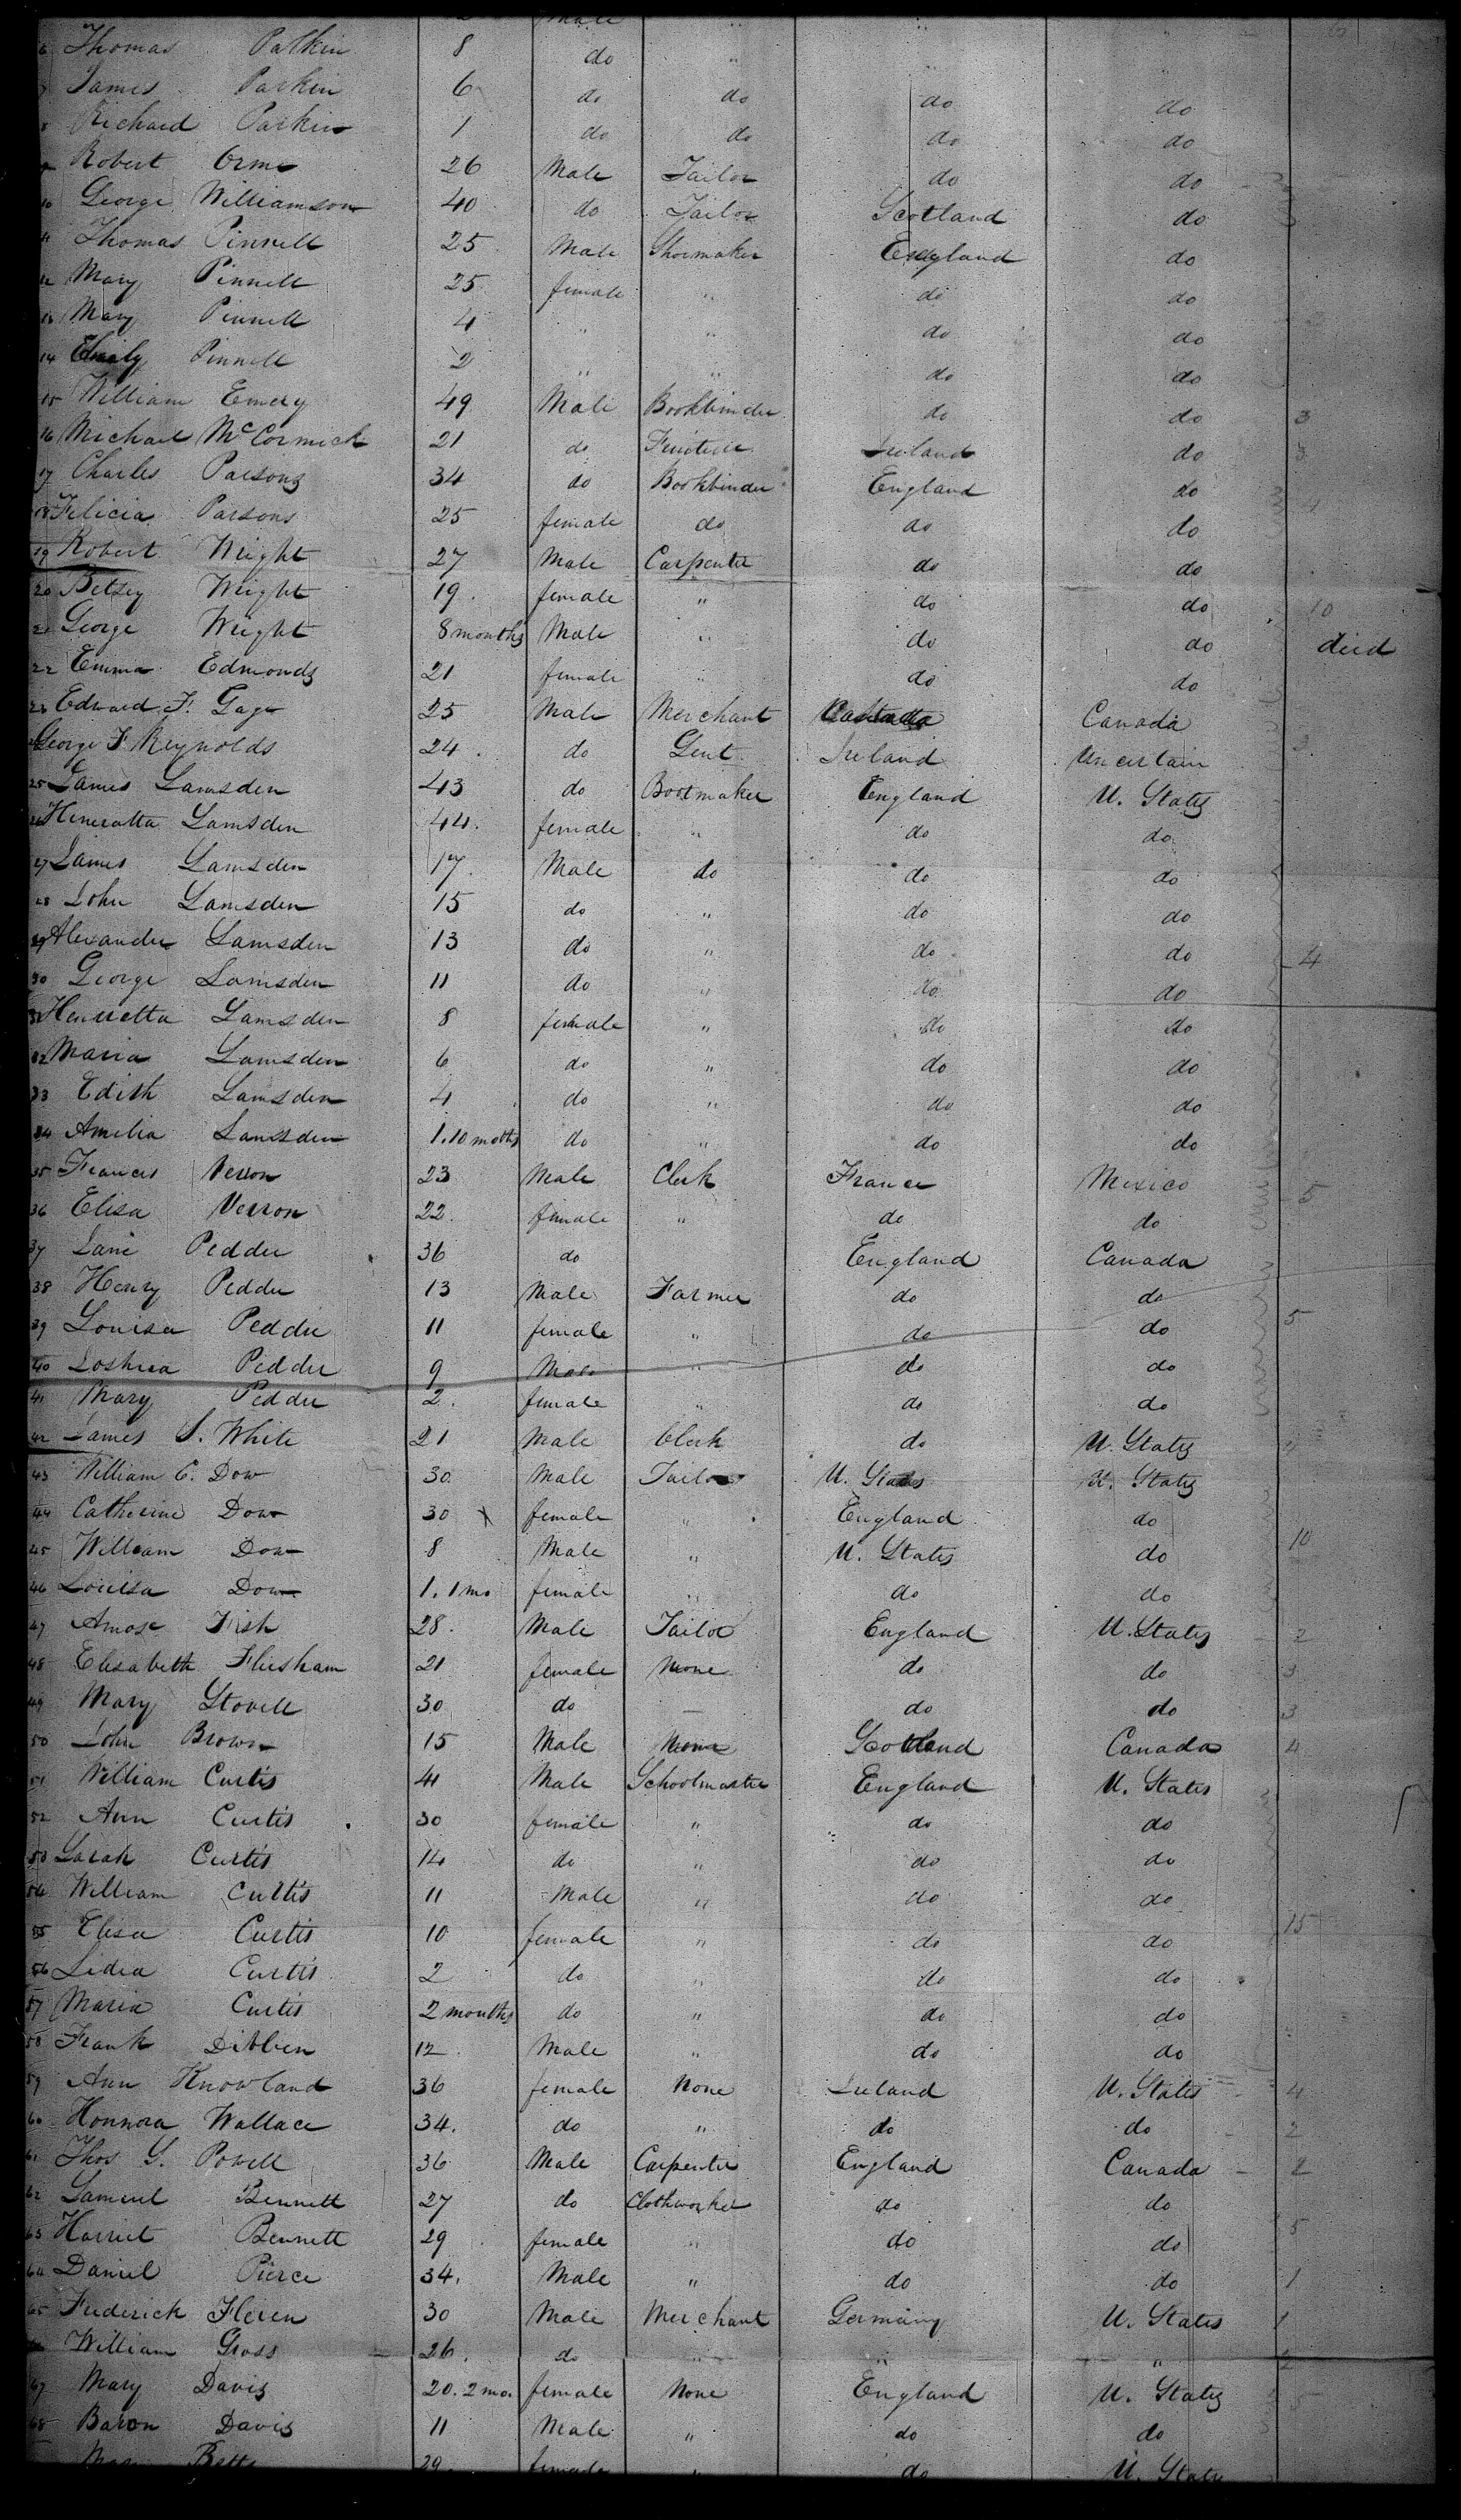 Male " " "
6 Thomas Parkin 8 do " " "
7 James Parkin 6 do do do do
8 Richard Parkin 1 do do do do
9 Robert Orme 26 Male Tailor do do
10 George Williamson 40 do Tailor Scotland do
11 Thomas Pinnell 25 Male Shoemaker England do
12 Mary Pinnell 25 female " do do
13 Mary Pinnell 4 " " do do
14 Emily Pinnell 2 " " do do
15 William Emery 49 Male Bookbinder do do 3
16 Michael McCormick 21 do Ireland do 3
17 Charles Parsons 34 do Bookbinder England do
18 Felicia Parsons 25 female do do do
19 Robert Wright 27 Male Carpenter do do
20 Betsey Wright 19 female " do do 10
21 George Wright 8 months Male " do do died
22 Emma Edmonds 21 female " do do
23 Edward F. Gage 25 Male Merchant Canada Canada
24 George F. Reynolds 24 do Gent Ireland Uncertain 3
25 James Lamsden 43 do Bootmaker England U. States
26 Heneratta Lamsden 44 female " do do
27 James Lamsden 17 Male do do do
28 John Lamsden 15 do " do do
29 Alexander Lamsden 13 do " do do 4
30 George Lamsden 11 do " do do
31 Henrietta Lamsden 8 female " do do
32 Maria Lamsden 6 do " do do
33 Edith Lamsden 4 do " do do
34 Amelia Lamsden 1.10 moths do " do do
35 Frances Verron 23 Male Clerk France Mexico 5
36 Elisa Verron 22 female " do do
37 Jane Pedder 36 do England Canada
38 Henry Pedder 13 Male Farmer do do
39 Louisa Pedder 11 female " do do 5
40 Joshua Pedder 9 Male " do do
41 Mary Pedder 2 female " do do
42 James S. White 21 Male Clerk do U. States
43 William C. Dow 30 Male Tailor U. States U. States
44 Catherine Dow 30 x female " England do
45 William Dow 8 Male " U. States do 10
46 Louisa Dow 1.1 mo female " do do
47 Amose Fish 28 Male Tailor England U. States 2
48 Elisabeth Flusham 21 female None do do 3
49 Mary Stovell 30 do — do do 3
50 John Brown 15 Male None Scotland Canada 4
51 William Curtis 41 Male Schoolmaster England U. States
52 Ann Curtis 30 female " do do
53 Sarah Curtis 14 do " do do
54 William Curtis 11 Male " do do
55 Elisa Curtis 10 female " do do 15
56 Lidia Curtis 2 do " do do
57 Maria Curtis 2 months do " do do
58 Frank Dibben 12 Male " do do
59 Ann Knowland 36 female None Ireland U. States 4
60 Honnora Wallace 34 do " do do 2
61 Thos G. Powell 36 Male Carpenter England Canada 2
62 Samuel Bennett 27 do Clothworker do do
63 Harriet Bennett 29 female " do do 5
64 Daniel Pierce 34 Male " do do 1
65 Frederick Fleren 30 Male Merchant Germany U. States 1
William Gross 26 do " " " 2
67 Mary Davis 20. 2 mo. female None England U. States 5
68 Baron Davis 11 Male " do do
Betts 29 female " do U. States